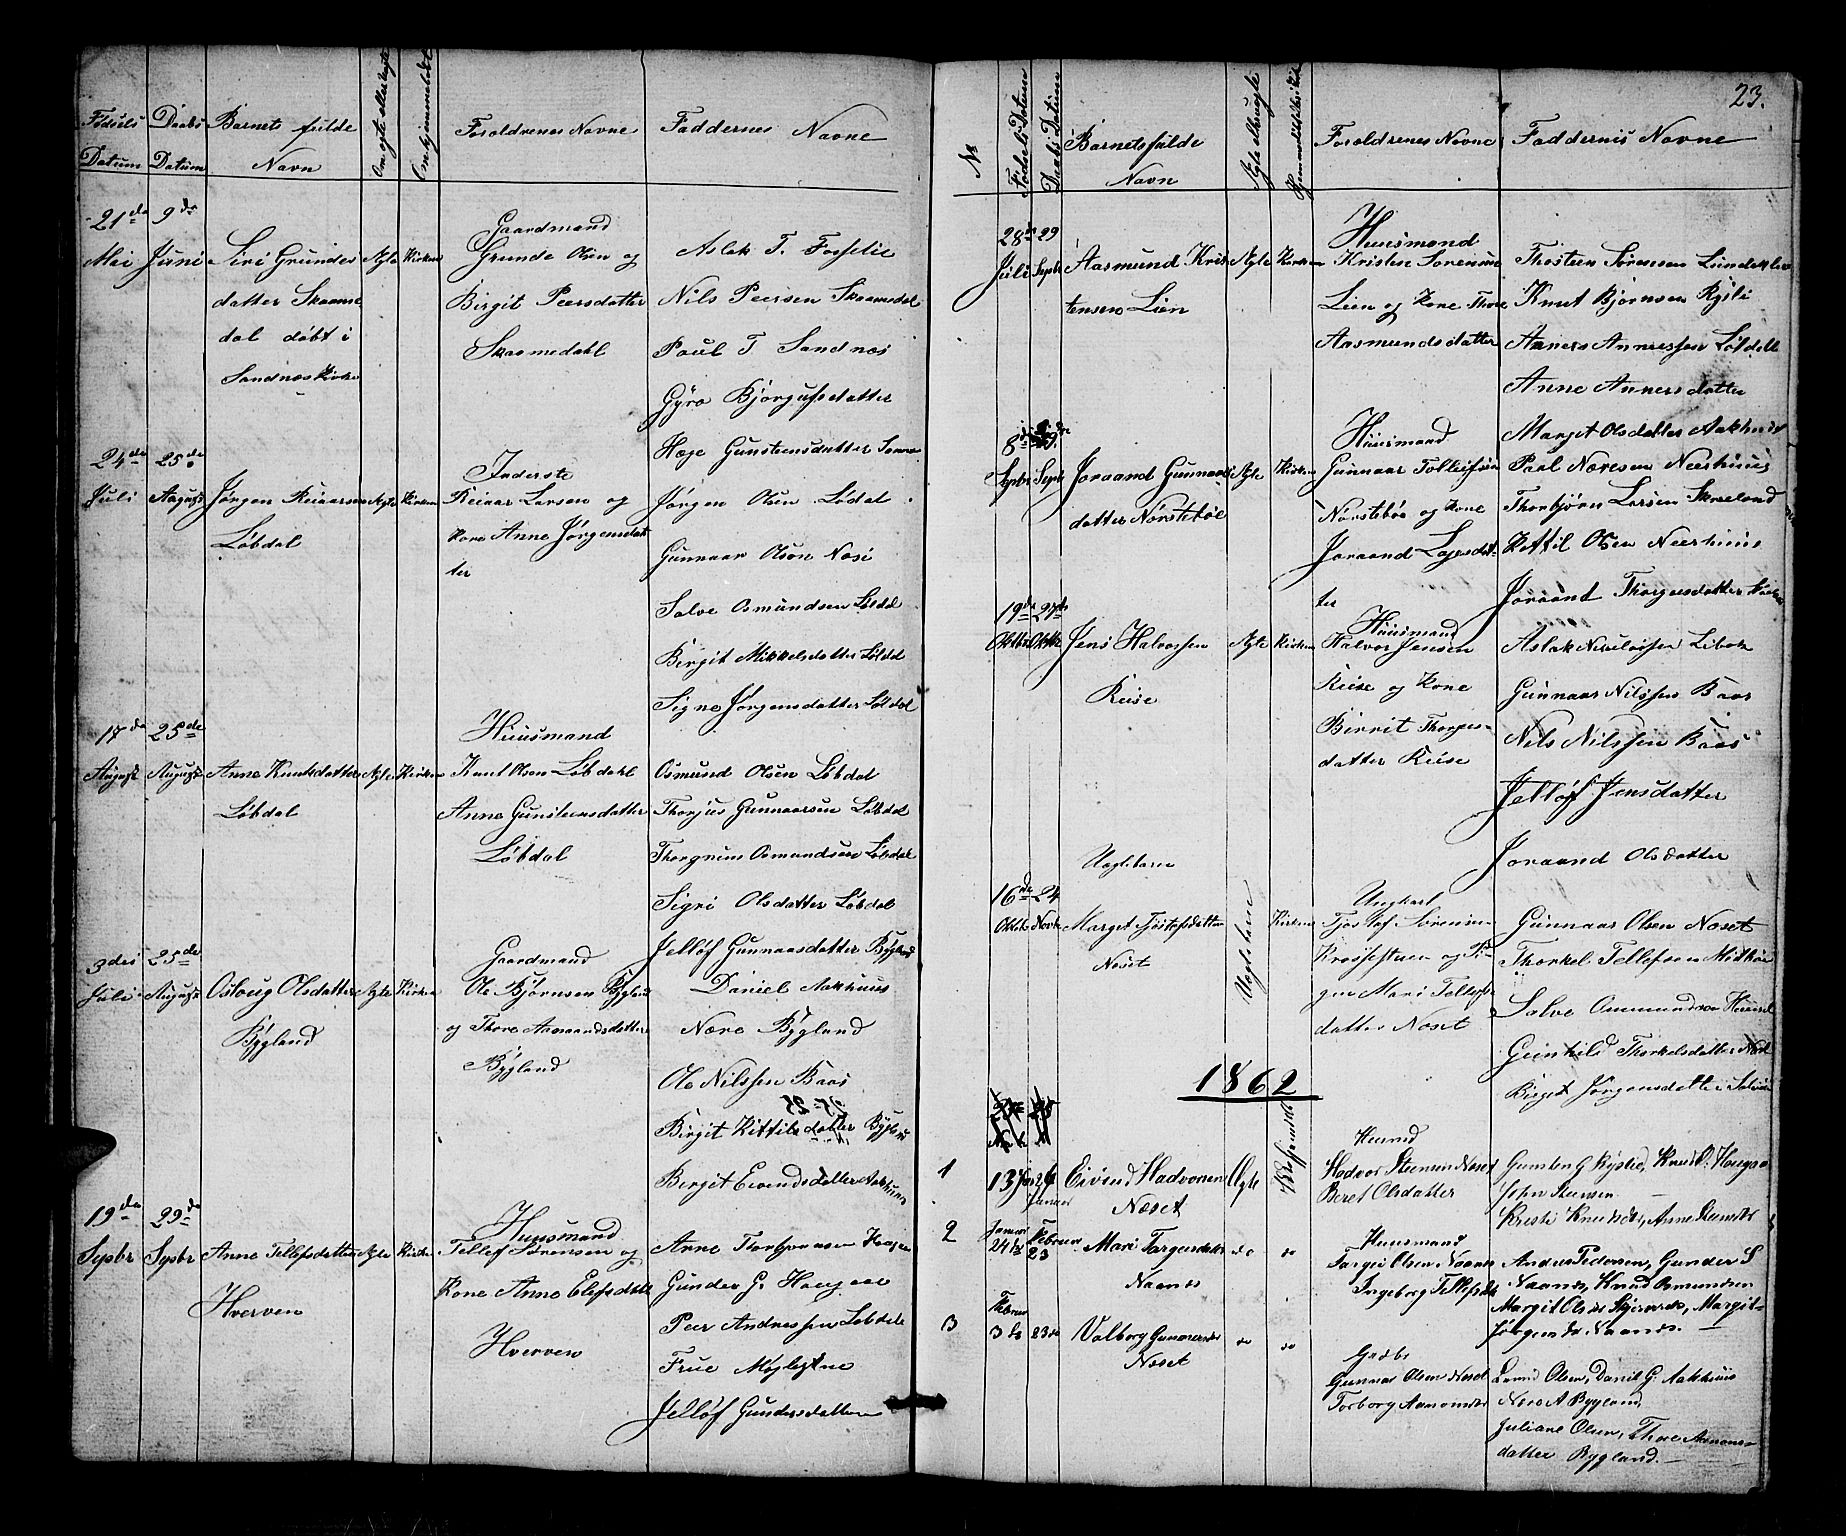 Fødsels Datum
Daabs Datum
Barnets fulde Navn
Om ægte eller uægte
Om hjemmedøbt
Forældrenes Navne
Faddernes Navne
21de Mai
9de Juni
Siri Grundes
datter Skaamme
dal døbt i
Sandnæs Kirke
Ægte
Kirken
Gaardmand
Grunde Olsen og
Birgit Peersdatter
Skaamedahl
Aslak T. Fosselie
Nils Peersen Skaamedal
Paul T Sandnæs
Gyro Bjørgufsdatter
Hæge Gunsteensdatter
24de Juli
25de August
Jørgen Reiarsen
Løbdal
Ægte
Kirken
Inderste
Reiaar Larsen og
Kone Anne Jørgensdat
ter
Jørgen Olsen Lødal
Gunnaar Olson Næsi
Salve Osmundsen Løbdal
Birgit Mikkelsdatter Løbdal
Signe Jørgensdatter Løbdal
17de August
25de August
Anne Knutsdatter
Løbdal
Ægte
Kirken
Huusmand
Knut Olsen Løbdahl
Anne Gunsteensdatter
Løbdal
Osmund Olsen Løbdal
Thorjus Gunnaarsen Løbdal
Thorgrim Osmundsen Løbdal
Sigri Olsdatter Løbdal
Jelløf Gunnaasdatter Bygland
3die Juli
25de August
Osloug Olsdatter
Bygland
Ægte
Kirken
Gaardmand
Ole Bjørnsen Bygland
og Thore Aanaandsdatter
Bygland
Daniel Aakhuus
Nære Bygland
Ole Nilssen Baas
Birgit Kittilsdatter Bygland
Birgit Eivindsdatter Aakhuus
19de Sepbr
29de Sepbr
Anne Tellefsdatter
Hverven
Ægte
Kirken
Huusmand
Tellef Sørensen og
Kone Anne Elefsdatter
Hverven
Anne Thorbjørnsen
Gunder G. Haugaas
Peer Andressen Løbdal
Frue
Jelløf Gundersdatter
23.
No
Fødsels Datum
Daabs Datum
Barnets fulde
Navn
Ægte ell uægte
Forældrenes Navne
Faddernis Navne
28de Juli
29 Sepbr
Aasmund Kris
tensen Lien
Ægte
Kirken
Huusmand
Kristen Sørensen
Lien og Kone Thore
Aasmundsdatter
Thosteen Sørensen
Knut Bjørnsen Rysli
Anners Annersen Løbdal
Anne Annersdatter
Marget Olsdatter Aakhuus
8de Sepbr
29de Sepbr
Joraand Gunnaas
datter Nørstebøe
Ægte
Kirken
Huusmand
Gunnaar Tolleifsen
Nørstebøe og Kone
Joraand
ter
Paal Næresen Neerhuus
Thorbjørn Larsen Skreeland
Kittil Olsen Neerhuus
Joraand Thorgersdatter
19de Oktbr
27de Oktbr
Jens Halvorsen
Reise
Ægte
Kirken
Huusmand
Halvor Jensen
Reise og Kone
Birrit Thorges-
datter Reise
Aslak
Gunnaar Nilssen Baas
Nils Nilssen Baas
Jelløf Jensdatter
Joraand Olsdatter
Uægtebarn
16de Oktbr
24 Novbr
Marget Tjøstefsdatter
Næset
Uægtebarn
Kirken
Ungkarl
Tjøstof Sørensen
og Pi-
gen Mari Tellefs
datter Næset
Gunnaar Olsen Næset
Thorkel Tellefsen
Salve Ommundsen
Gunhild Thorkelsdatter
Birget Jørgensdatter
1862
1
13 Jan
26 Januar
Eivind Hadvorsen
Næset
Ægte
Huusmd
Hadvor Steensen Næset
Beret Olsdatter
Gunsten G Ryslie, Knud O. Haugaa
John Steensen
Kristi Knudsdtr, Anne Steensdtr
2
Januar 24de
Februar 23
Mari Targeisdatter
Naanes
do
do
Huusmand
Targei Olsen Naanes
Ingeborg Tellefsdtr
Anders Pedersen, Gunder S
Naanes, Knud Osmundsen
Margit Olsdtr, Margit
Jørgensdtr Naanes.
3
Februar 3de
23de
Valborg Gunnersdtr
Næset
do
do
Gaardbr
Gunnar Olsen Næset
Torborg Aanonsdtr
Olsen, Daniel G. Aakhuus
Næri A Bygland,
Juliane Olsen, Thore Aanons-
datter Bygland.